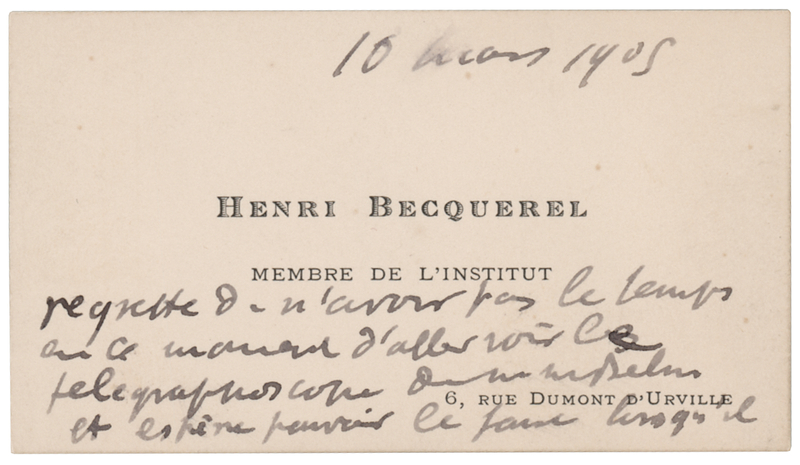 10 mars 1905
HENRI BECQUEREL
MEMBRE DE L'INSTITUT
regrette de n'avoir pas le temps
en ce moment d'aller voir le
telegraphoscope de m
6, RUE DUMONT D'URVILLE
et espère pouvoir le faire lorsqu'il